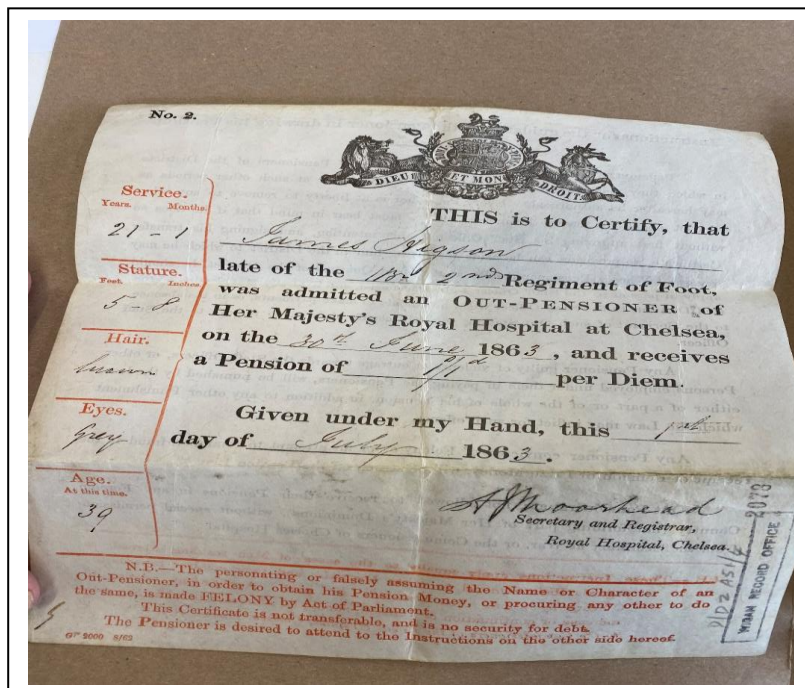 No. 2.
DIEU ET MON DROIT
Service.
Years. Months.
21 - 1
Stature.
Feet. Inches.
5 - 8
Hair.
brown
Eyes.
Grey
Age.
At this time.
39
THIS is to Certify, that
James Higson
late of the 2nd Regiment of Foot,
was admitted an OUT-PENSIONER of
Her Majesty's Royal Hospital at Chelsea,
on the 30th June 1863, and receives
a Pension of per Diem.
Given under my Hand, this
day of July 1863.
Moorhead
Secretary and Registrar,
Royal Hospital, Chelsea.
N.B.—The personating or falsely assuming the Name or Character of an
Out-Pensioner, in order to obtain his Pension Money, or procuring any other to do
the same, is made FELONY by Act of Parliament.
This Certificate is not transferable, and is no security for debt.
The Pensioner is desired to attend to the Instructions on the other side hereof.
2000 8/62
WIGAN RECORD OFFICE